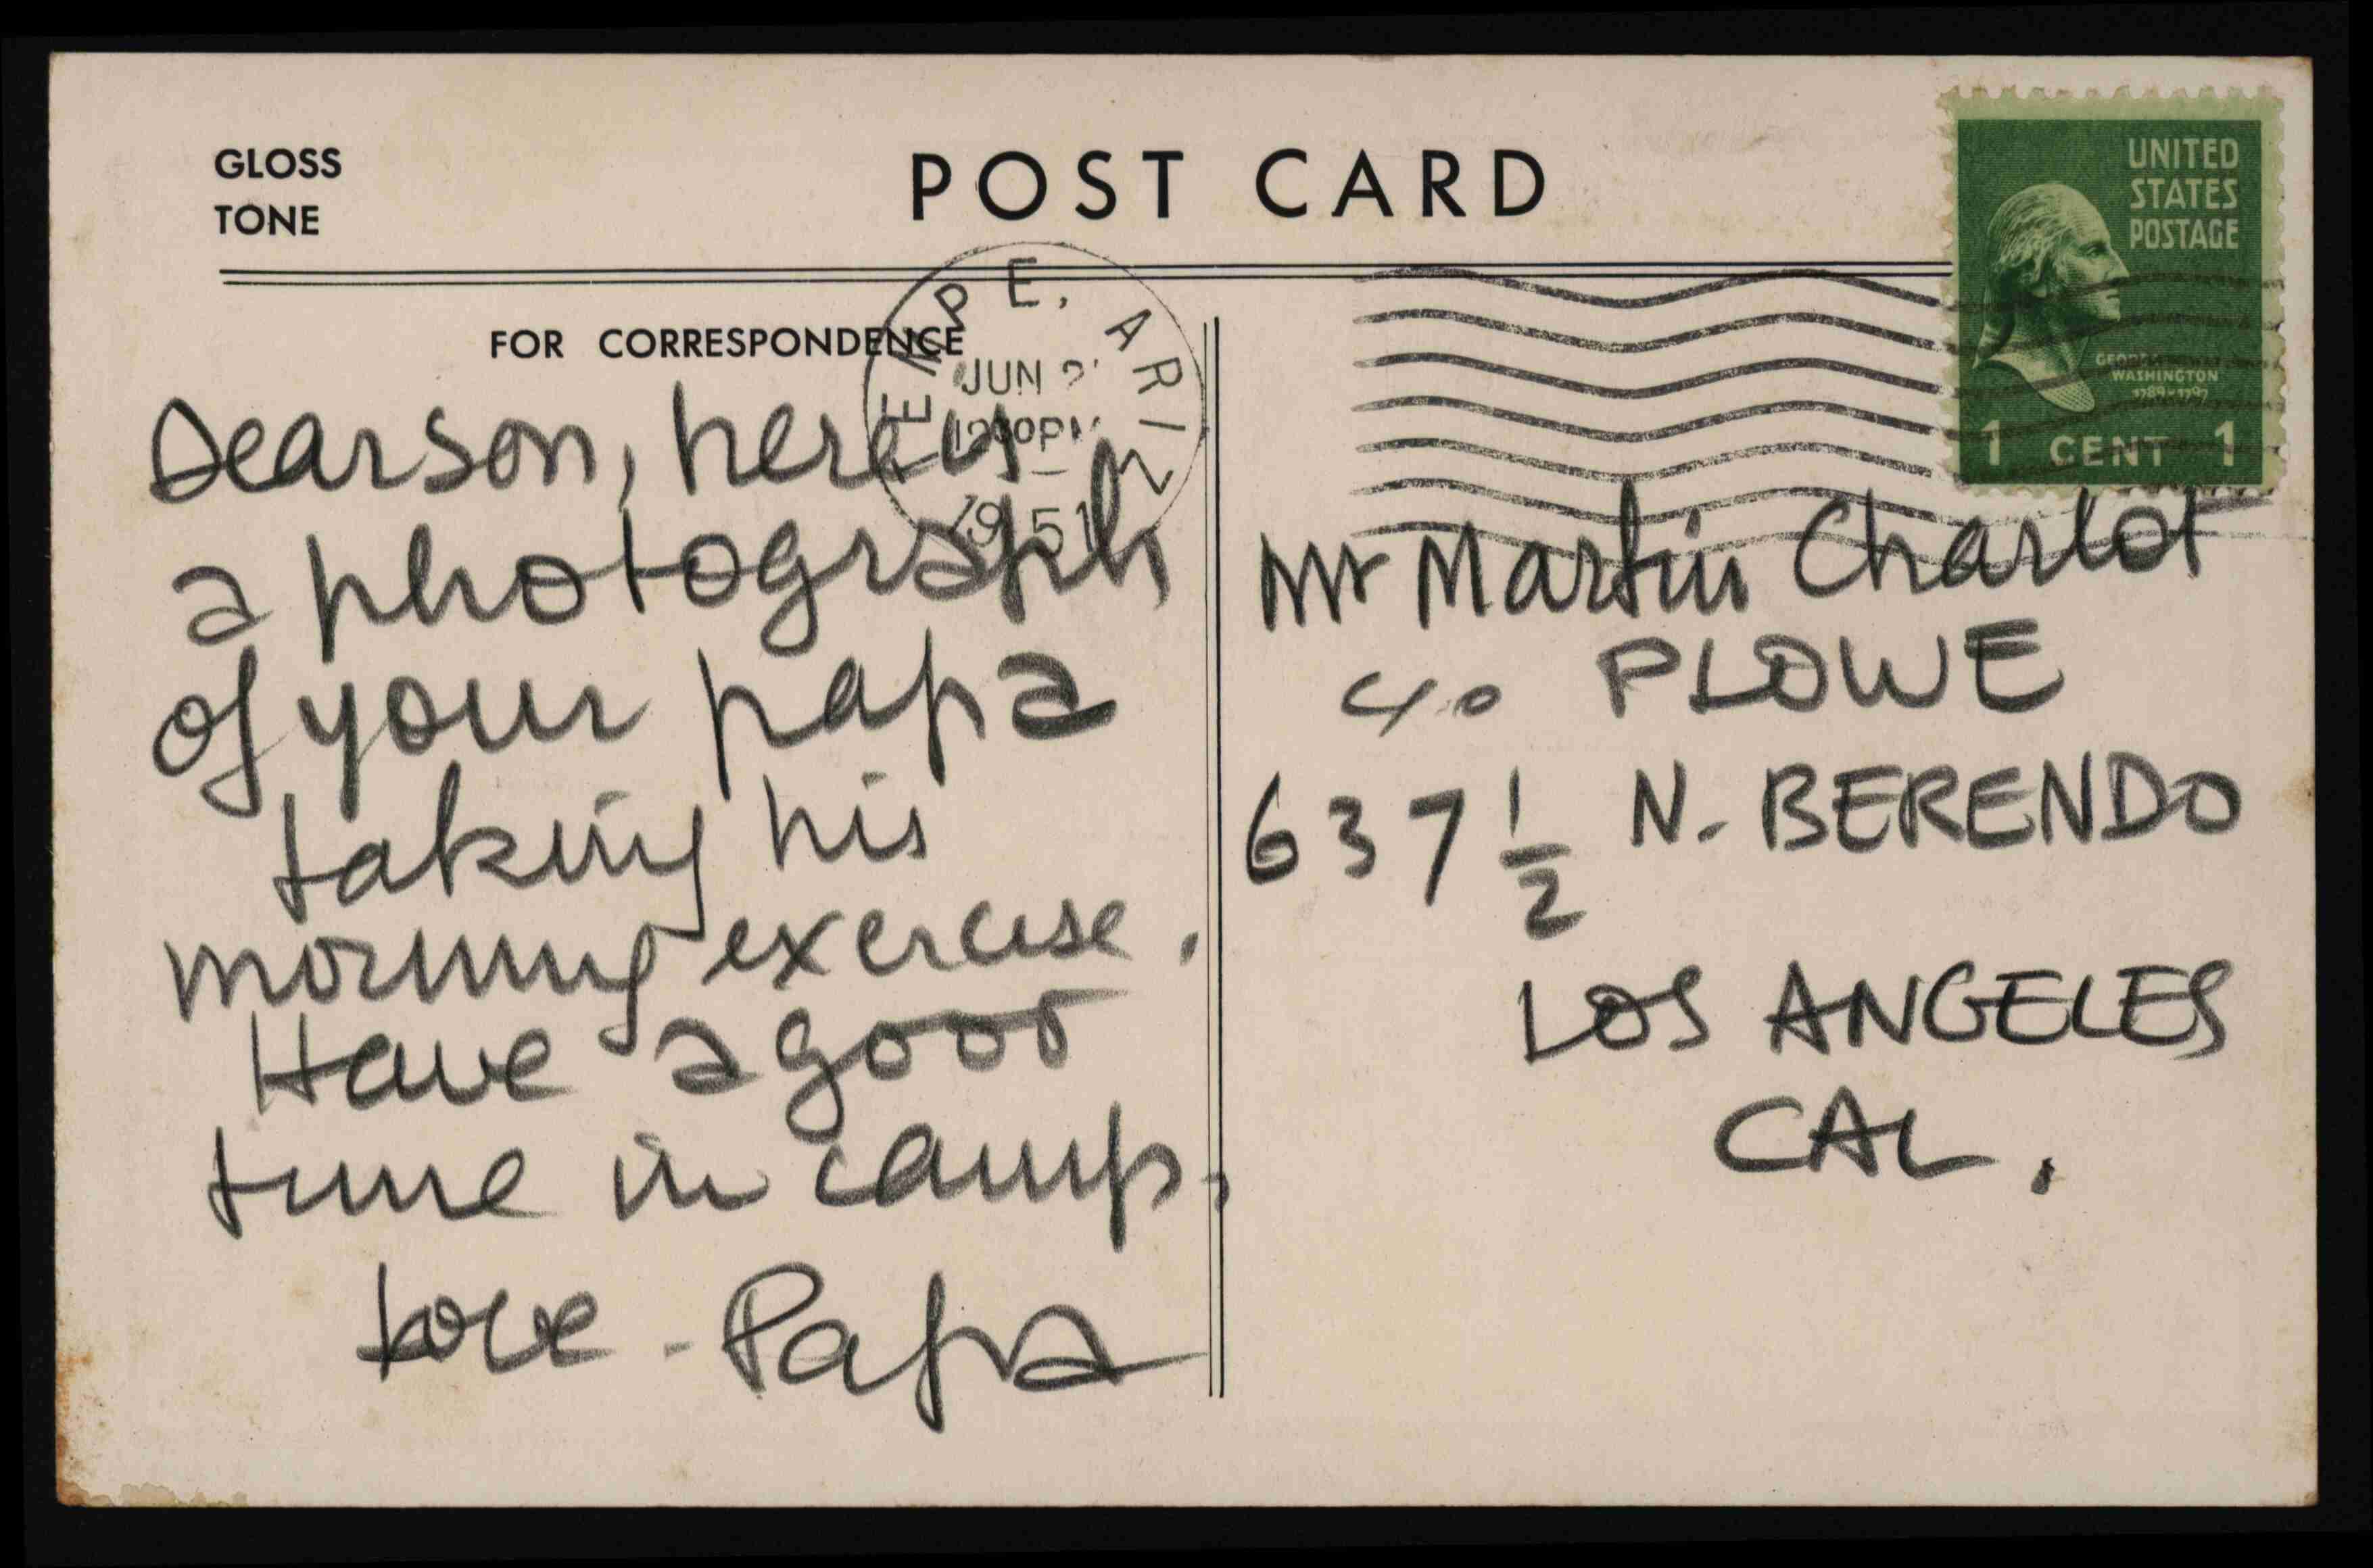 GLOSS
TONE
POST CARD
FOR CORRESPONDENCE
TEMPE, ARIZ
JUN
1951
UNITED
STATES
POSTAGE
WASHINGTON
1789-1797
1 CENT 1
Dear son, here is
a photograph
of your papa
taking his
morning exercise.
Have a good
time in camp,
Love - Papa
Mr Martin Charlot
c/o PLOWE
637 1/2 N. BERENDO
LOS ANGELES
CAL.